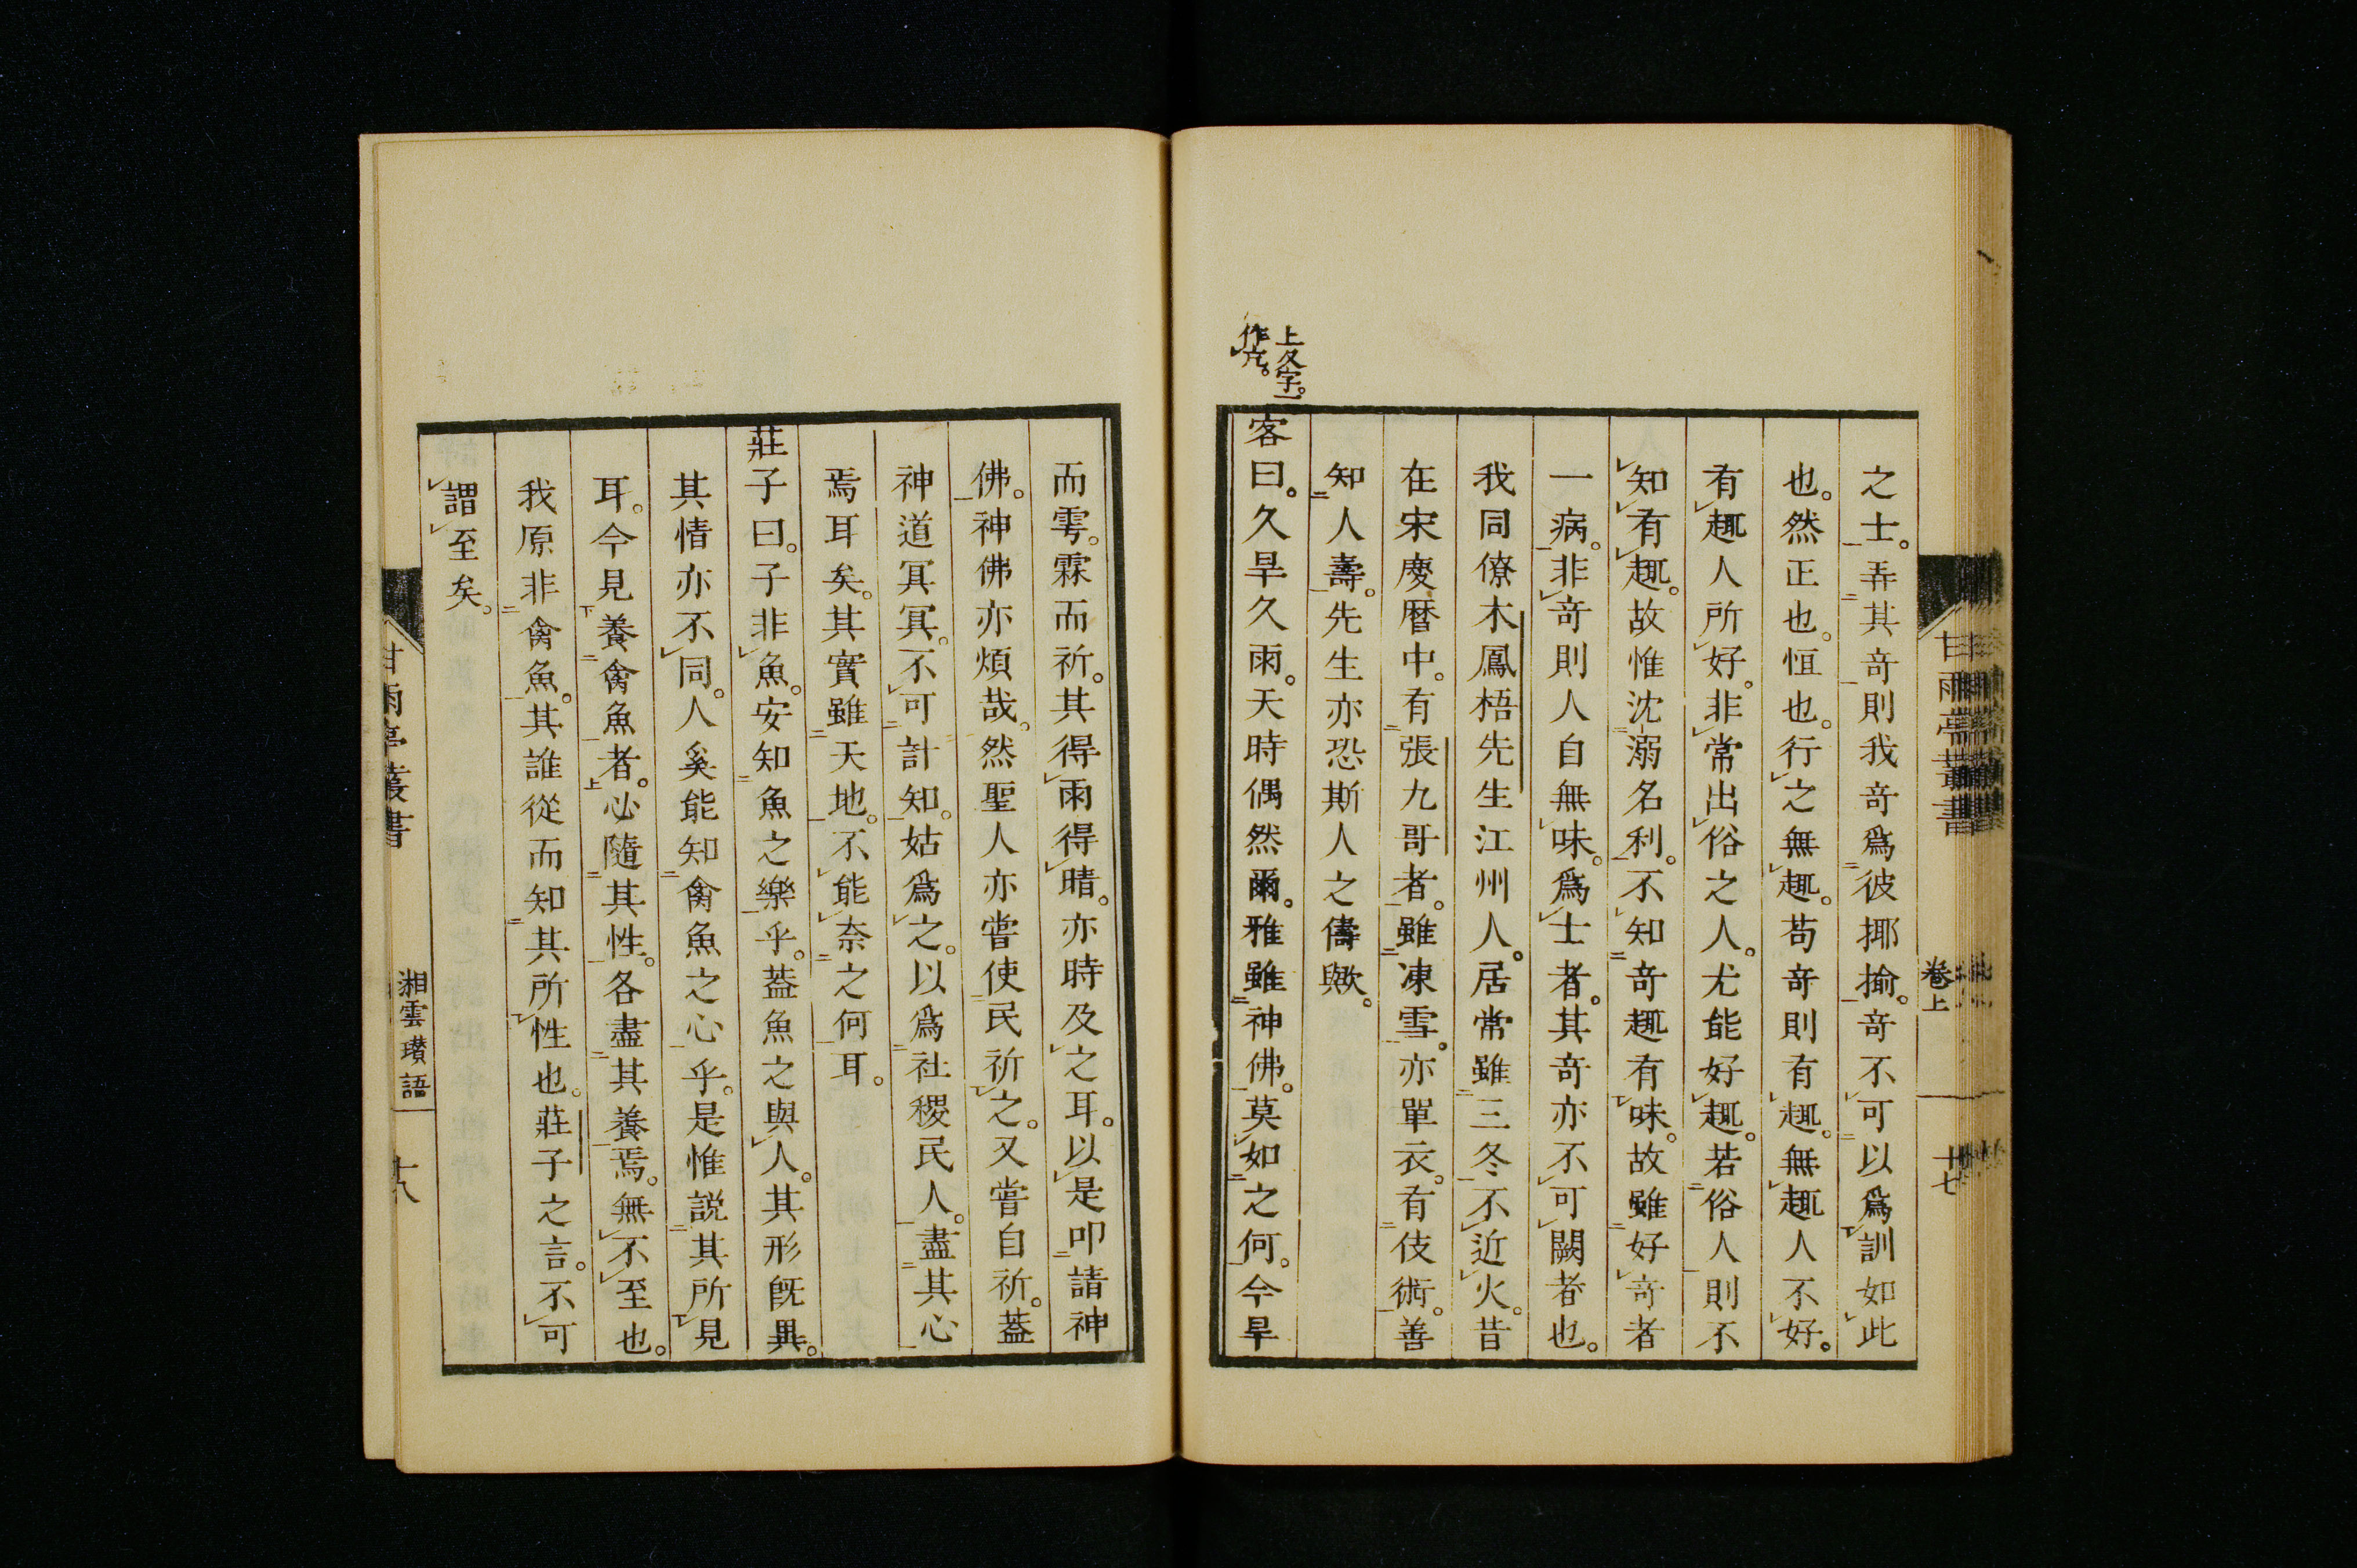 之士。弄其奇則我奇爲彼揶揄。奇不可以爲訓如此
也。然正也。恒也。行之無趣。苟奇則有趣。無趣人不好。
有趣人所好。非常出俗之人。尤能好趣。若俗人則不
知有趣。故惟沈溺名利。不知奇趣有味。故雖好奇者
一病。非奇則人自無味。爲士者。其奇亦不可闕者也。
我同僚木鳳梧先生江州人。居常雖三冬不近火。昔
在宋慶曆中。有張九哥者。雖凍雪。亦單衣。有伎術。善
知人壽。先生亦恐斯人之儔歟。
上久字。
作亢。
客曰。久旱久雨。天時偶然爾。雅雖神佛。莫如之何。今旱
卷上
十七
而雩。霖而祈。其得雨得晴。亦時及之耳。以是叩請神
佛。神佛亦煩哉。然聖人亦嘗使民祈之。又嘗自祈。蓋
神道冥冥。不可計知。姑爲之。以爲社稷民人。盡其心
焉耳矣。其實雖天地。不能奈之何耳。
莊子曰。子非魚。安知魚之樂乎。蓋魚之與人。其形旣異。
其情亦不同。人奚能知禽魚之心乎。是惟説其所見
耳。今見養禽魚者。必隨其性。各盡其養焉。無不至也。
我原非禽魚。其誰從而知其所性也。莊子之言。不可
謂至矣。
甘雨亭叢書
湘雲瓚語
十八